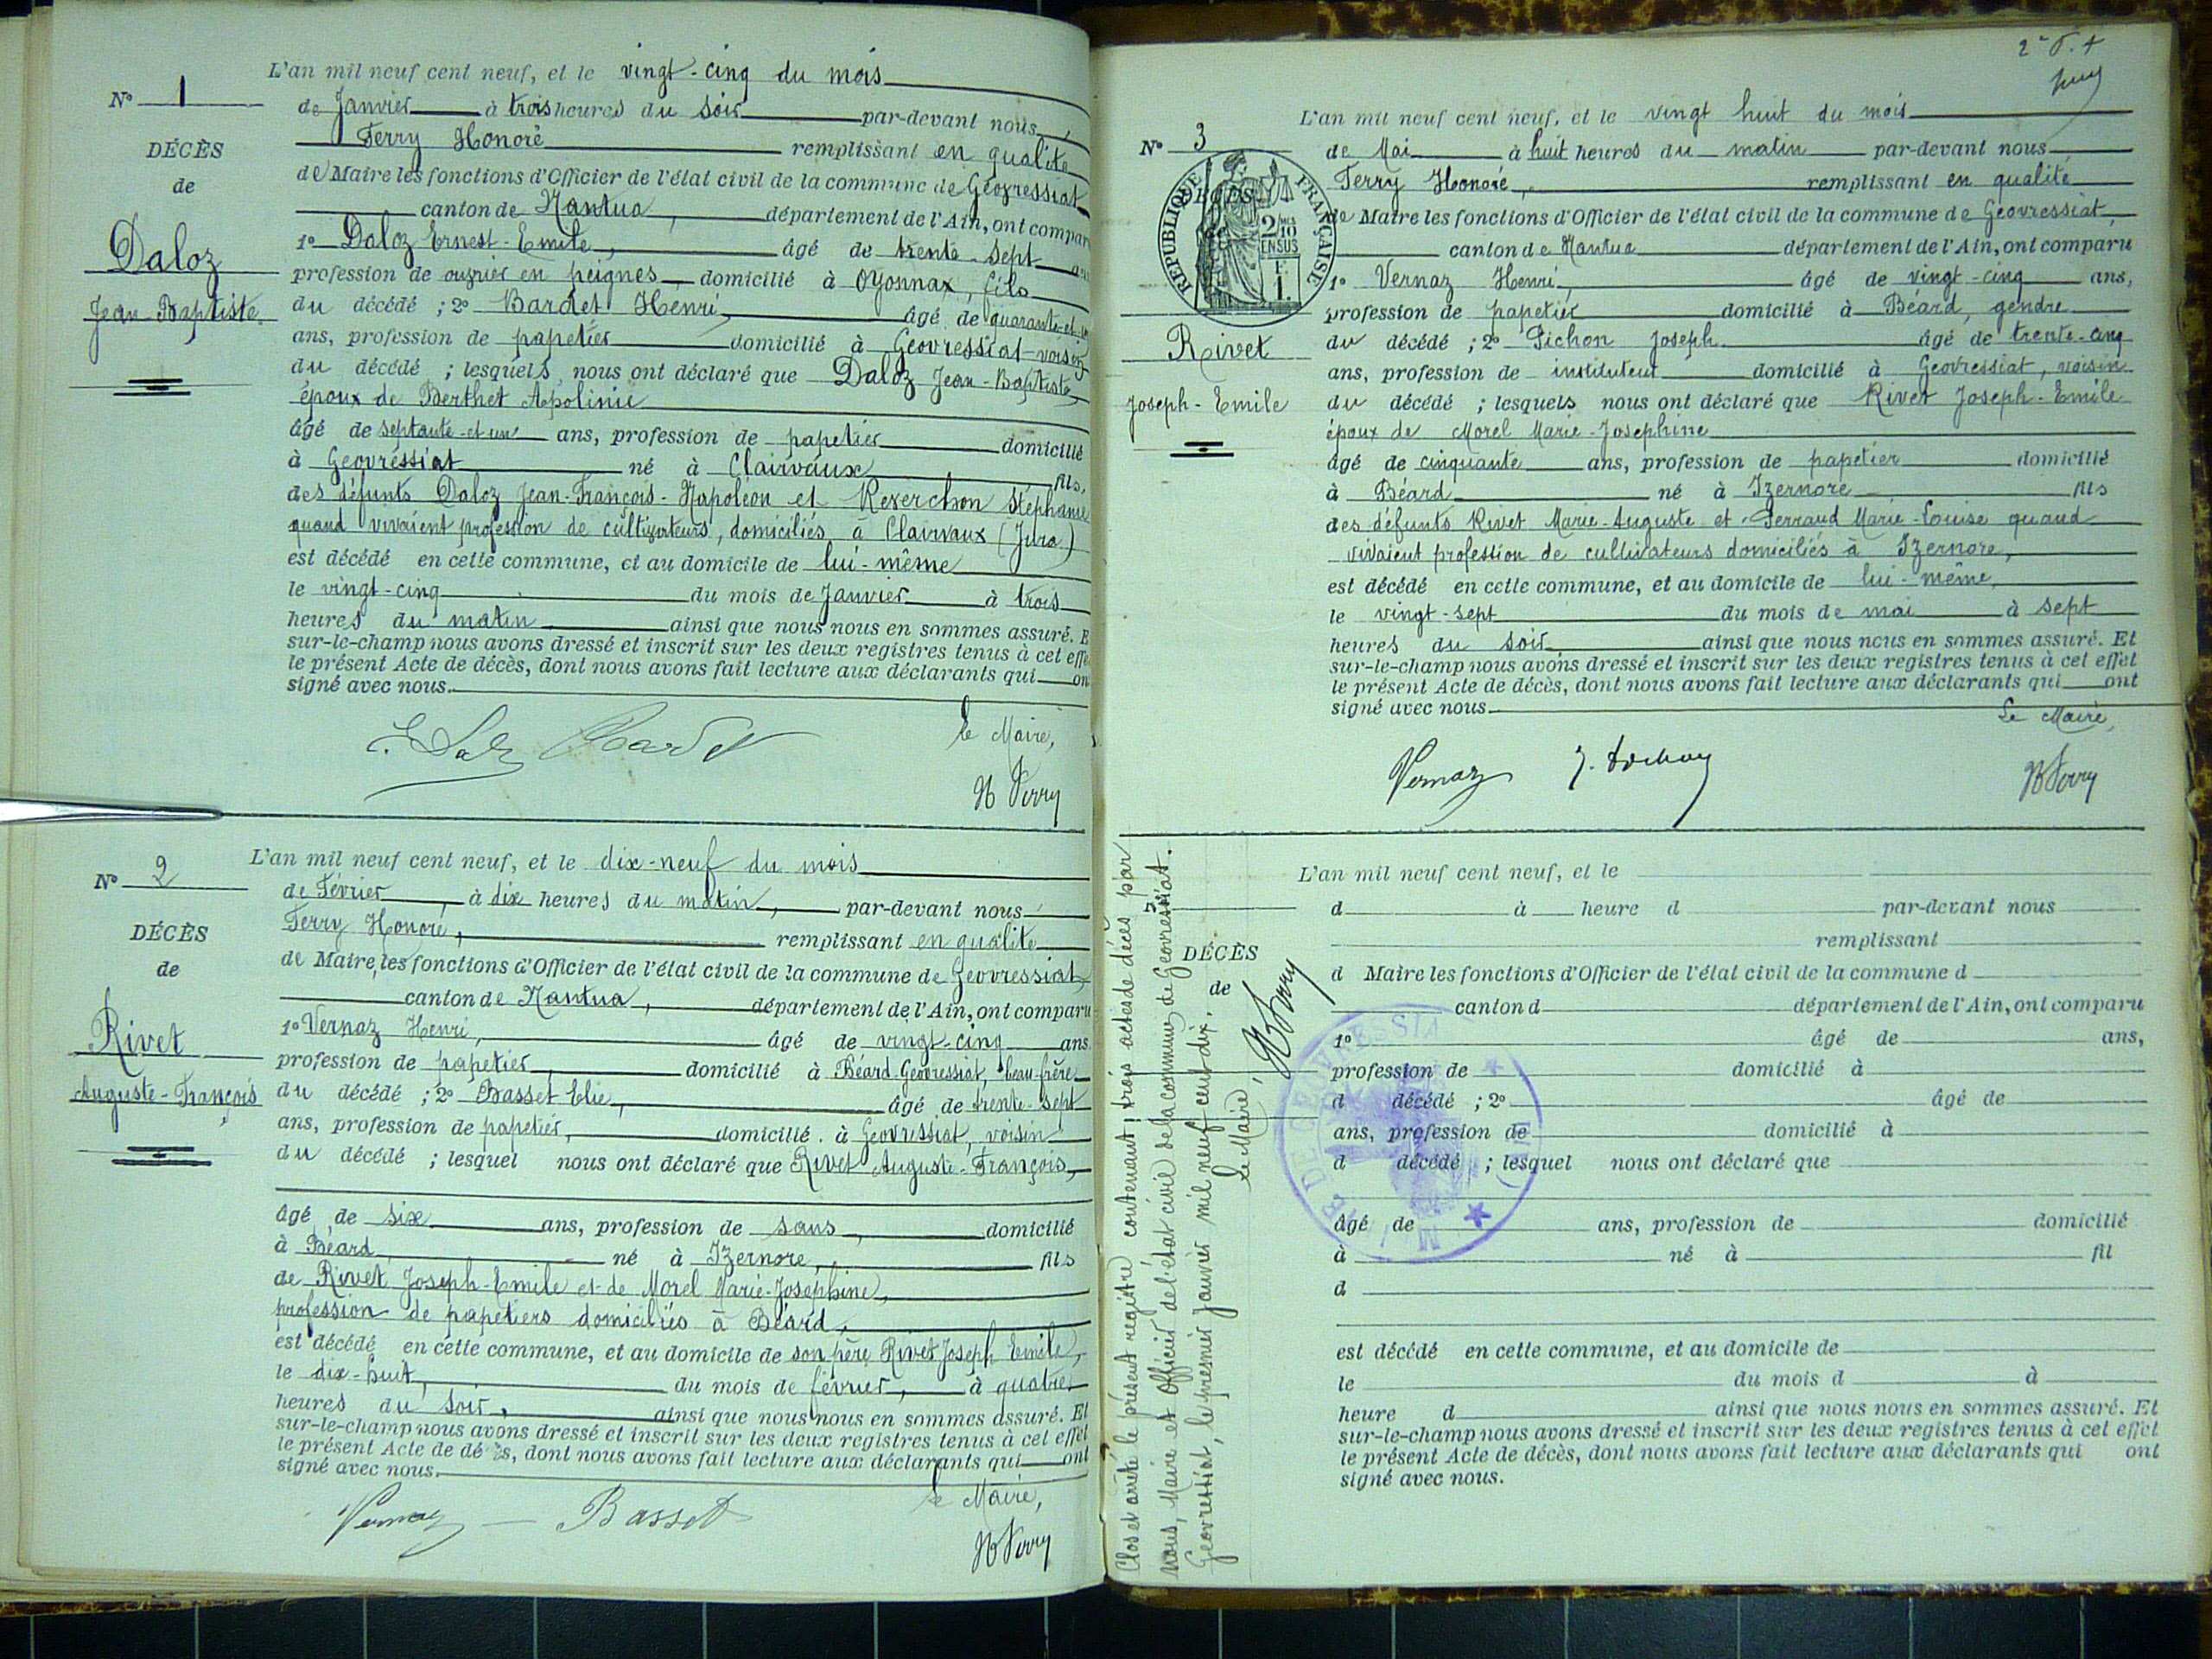 N° 1
DÉCÈS
de
Daloz
Jean-Baptiste.
L'an mil neuf cent neuf, et le vingt-cinq du mois
de Janvier à trois heures du soir par-devant nous
Ferry Honoré remplissant en qualité
de Maire les fonctions d'Officier de l'état civil de la commune de Géovressiat
canton de Nantua, département de l'Ain, ont compar
1° Daloz Ernest-Emile, âgé de trente-sept
profession de ouvrier en peignes, domicilié à Oyonnax, fils
du décédé ; 2° Bardet Henri, âgé de quarante-et-un
ans, profession de papetier domicilié à Géovressiat-voisin
du décédé ; lesquels nous ont déclaré que Daloz Jean-Baptiste,
époux de Berthet Apolinie
âgé de septante-et-un ans, profession de papetier domicilié
à Géovressiat né à Clairvaux fils,
des défunts Daloz Jean-François-Napoléon et Reverchon Stéphanie
quand vivaient profession de cultivateurs, domiciliés à Clairvaux (Jura)
est décédé en cette commune, et au domicile de lui-même
le vingt-cinq du mois de Janvier à trois
heures du matin ainsi que nous nous en sommes assuré. E
sur-le-champ nous avons dressé et inscrit sur les deux registres tenus à cet effe
le présent Acte de décès, dont nous avons fait lecture aux déclarants qui on
signé avec nous.
le Maire,
E. Daloz Bardet
H Ferry
N° 2
DÉCÈS
de
Rivet
Auguste-François
L'an mil neuf cent neuf, et le dix-neuf du mois
de Février, à dix heures du matin, par-devant nous
Ferry Honoré, remplissant en qualité
de Maire, les fonctions d'Officier de l'état civil de la commune de Géovressiat
canton de Nantua, département de l'Ain, ont comparu
1° Vernaz Henri, âgé de vingt-cinq ans
profession de papetier, domicilié à Béard-Géovressiat, beau-frère
du décédé ; 2° Basset Elie, âgé de trente-sept
ans, profession de papetier, domicilié à Géovressiat, voisin
du décédé ; lesquel nous ont déclaré que Rivet Auguste-François,
âgé de six ans, profession de sans, domicilié
à Béard, né à Izernore, fils
de Rivet Joseph-Emile et de Morel Marie-Josephine,
profession de papetiers domiciliés à Béard,
est décédé en cette commune, et au domicile de son père Rivet Joseph Emile,
le dix-huit, du mois de février, à quatre
heures du soir, ainsi que nous nous en sommes assuré. Et
sur-le-champ nous avons dressé et inscrit sur les deux registres tenus à cet effet
le présent Acte de dé ès, dont nous avons fait lecture aux déclarants qui ont
signé avec nous.
le Maire,
Vernaz — Basset
H Ferry
N° 3
RÉPUBLIQUE FRANÇAISE
DÉCÈS
2/10 EN SUS
F. 1.
Rivet
Joseph-Emile
L'an mil neuf cent neuf, et le vingt huit du mois
de Mai à huit heures du matin par-devant nous
Ferry Honoré, remplissant en qualité
de Maire les fonctions d'Officier de l'état civil de la commune de Géovressiat,
canton de Nantua département de l'Ain, ont comparu
1° Vernaz Henri, âgé de vingt-cinq ans,
profession de papetier domicilié à Béard, gendre
du décédé ; 2° Pichon Joseph âgé de trente-cinq
ans, profession de instituteur domicilié à Géovressiat, voisin
du décédé ; lesquels nous ont déclaré que Rivet Joseph-Emile
époux de Morel Marie-Josephine
âgé de cinquante ans, profession de papetier domicilié
à Béard né à Izernore fils
des défunts Rivet Marie-Auguste et Perraud Marie-Louise quand
vivaient profession de cultivateurs domiciliés à Izernore,
est décédé en cette commune, et au domicile de lui-même,
le vingt-sept du mois de mai à sept
heures du soir ainsi que nous nous en sommes assuré. Et
sur-le-champ nous avons dressé et inscrit sur les deux registres tenus à cet effet
le présent Acte de décès, dont nous avons fait lecture aux déclarants qui ont
signé avec nous.
Le Maire,
Vernaz J. Pichon H Ferry
Clos et arrêté le présent registre contenant trois actes de décès par
nous, Maire et officier de l'état civil de la commune de Géovressiat.
Géovressiat, le premier Janvier mil neuf cent dix.
Le Maire,
H Ferry
DÉCÈS
de
L'an mil neuf cent neuf, et le
d à heure d par-devant nous
remplissant
d Maire les fonctions d'Officier de l'état civil de la commune d
canton d département de l'Ain, ont comparu
1° âgé de ans,
profession de domicilié à
d décédé ; 2° âgé de
ans, profession de domicilié à
d décédé ; lesquel nous ont déclaré que
âgé de ans, profession de domicilié
à né à fil
d
est décédé en cette commune, et au domicile de
le du mois d à
heure d ainsi que nous nous en sommes assuré. Et
sur-le-champ nous avons dressé et inscrit sur les deux registres tenus à cet effet
le présent Acte de décès, dont nous avons fait lecture aux déclarants qui ont
signé avec nous.